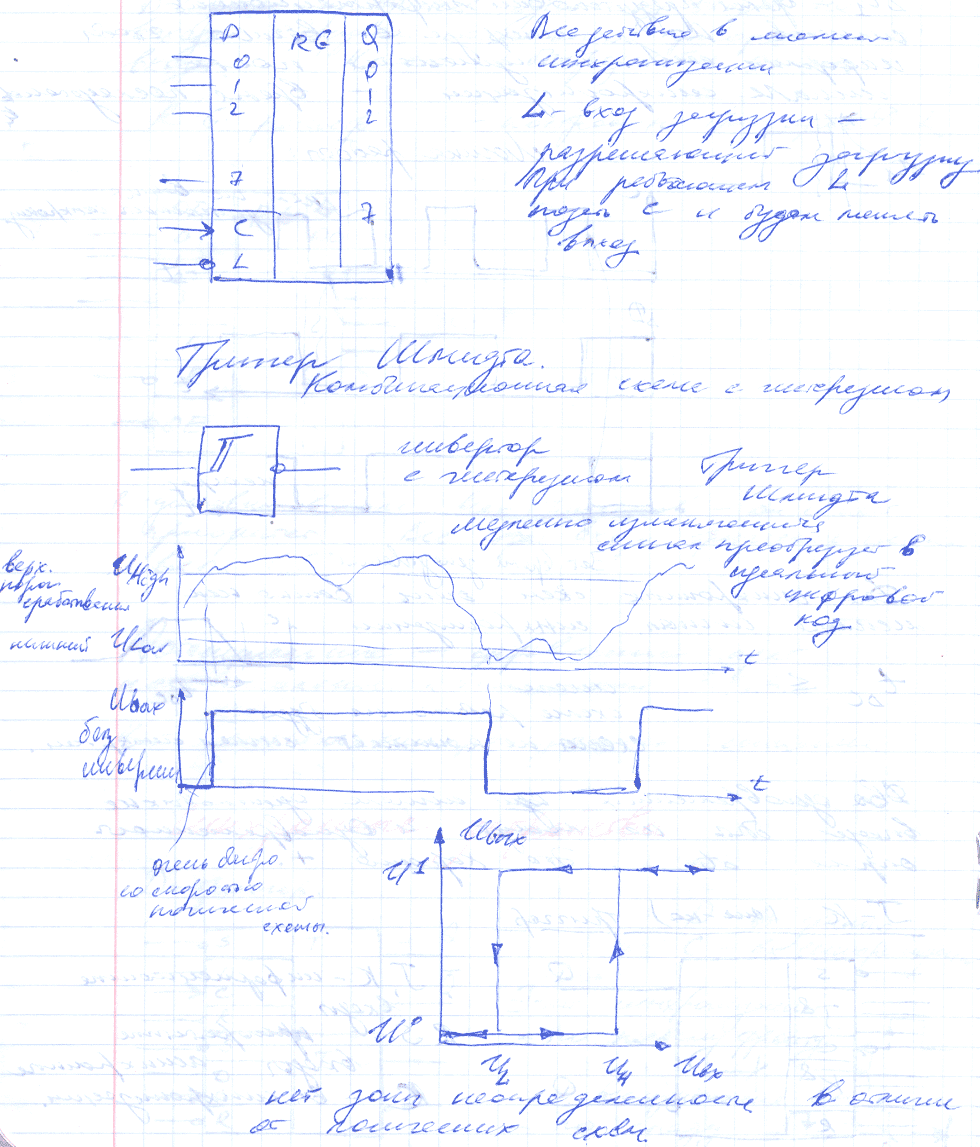 D RG Q
0 0
1 1
2 2
7 7
C
L
Все действия в момент
синхронизации
L - вход загрузки =
разрешающий загрузку
При L
подать C и будет менять
выход
Триггер Шмидта.
Комбинационная схема с гистерезисом
инвертор
с гистерезисом
Триггер
Шмидта
медленно изменяющийся
сигнал преобразует в
идеальный
цифровой
код
верх.
порог
срабатывания
UHigh
нижний ULow
t
Uвых
без
инверсии
t
очень быстро
со скоростью
логической
схемы.
Uвых
U1
U0
UL UH Uвх
нет зоны неопределенности в отличии
от логических схем.